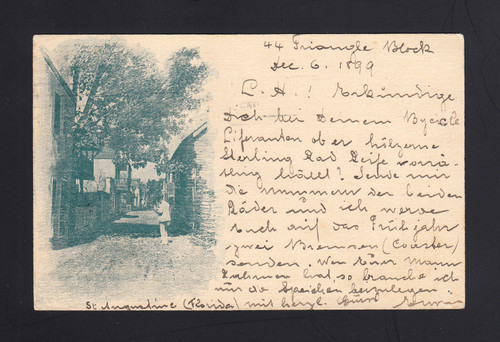 44 Triangle Block
Dec. 6. 1899
L. A.! Erkundige
Dich bei Deinem Bycicle
Liferanten ob er hölzerne
Sterling Rad Reife vorrä-
thig hält? Sende mir
die Nummer der beiden
Räder und ich werde
Euch auf das Frühjahr
zwei Bremsen (Coaster)
senden. Wen Euer Mann
Rahmen hat, so brauche ich
nur die Speichen beizulegen.
mit herzl. Euer
St. Augustine (Florida)